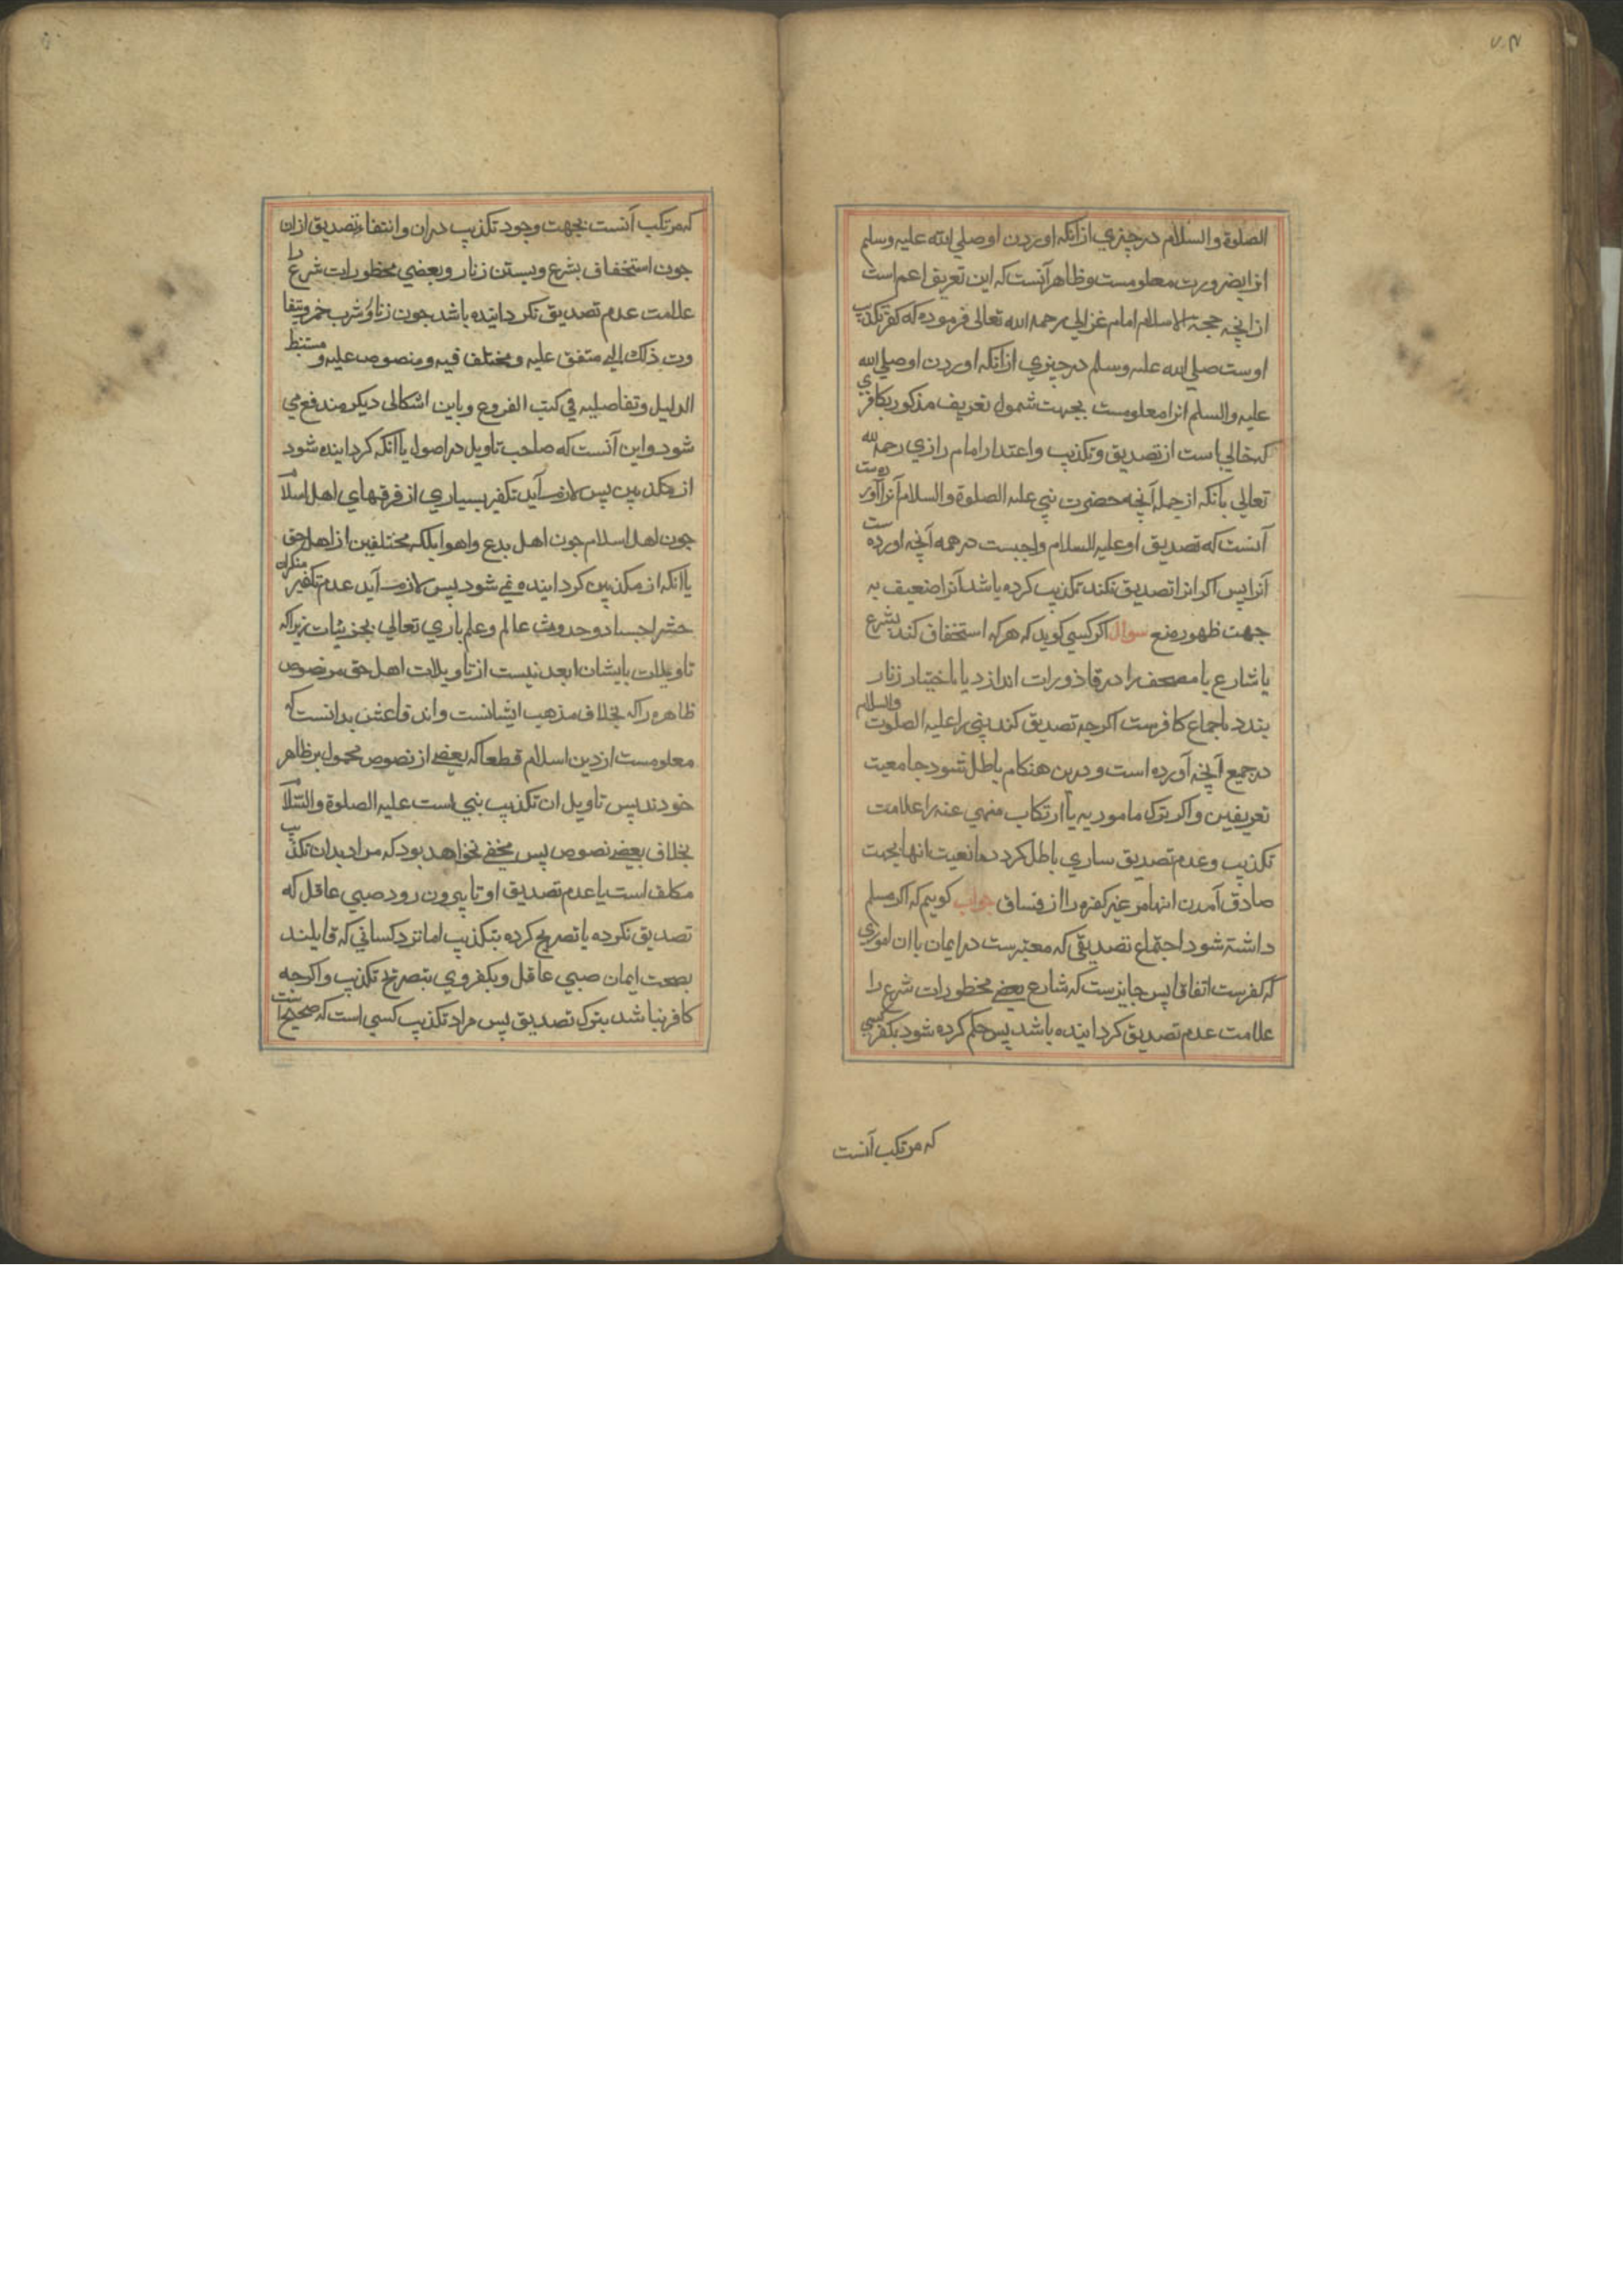 الصلوة والسلام در چیزي از انکه اوردن او صلي الله علیه وسلم
انرا بضرورت معلومست وظاهر آنست که این تعریف اعم است
از انچه حجة الاسلام امام غزالي رحمه الله تعالی فرموده که کفر تکذیب
اوست صلي الله علیه وسلم در چیزي از انکه اوردن او صلي الله
علیه والسلم انرا معلومست بجهت شمول تعریف مذکور بکافري
که خالي است از تصدیق وتکذیب واعتدار امام رازي رحمه الله
تعالي بانکه از جمله آنچه حضرت نبي علیه الصلوة والسلام آنرا آورده است
آنست که تصدیق او علیه السلام واجبست در همه آنچه اورده ست
آنرا پس اکر انرا تصدیق نکند تکذیب کرده باشد آنرا ضعیف به
جهت ظهور منع سوال اکر کسي کوید که هر که استخفاف کند بشرع
یا شارع یا مصحف را در قاذورات اندازد یا باختیار زنار
بندد باجماع کافرست اکرچه تصدیق کند نبي را علیه الصلوت والسلام
در جمیع آنچه آورده است ودرین هنکام باطل شود جامعیت
تعریفین واکر ترک مامور به یا ارتکاب منهي عنه را علامت
تکذیب وعدم تصدیق ساري باطل کردد مانعیت انها بجهت
صادق آمدن انها مر غیر کفره را از فساق جواب کوییم که اکر مسلم
داشته شود اجتماع تصدیقی که معتبرست در ایمان با ان اموري
که کفرست اتفاقا پس جایزست که شارع بعضے محظورات شرع را
علامت عدم تصدیق کردانیده باشد پس حکم کرده شود بکفر کسي
که مرتکب آنست
که مرتکب آنست بجهت وجود تکذیب دران وانتفاء تصدیق ازان
جون استخفاف بشرع وبستن زنار وبعضي محظورات شرع را
علامت عدم تصدیق نکردانیده باشد جون زنا وشرب خمر ویتفا
وت ذلک الي متفق علیه ومختلف فیه ومنصوص علیه و مستنبط
الدلیل وتفاصلیه في کتب الفروع وباین اشکالی دیکر مندفع مي
شود واین آنست که صاحب تاویل در اصول یا انکه کردانیده شود
از مکذبین پس لازم آید تکفیر بسیاري از فرقهاي اهل اسلام
جون اهل اسلام جون اهل بدع واهوا بلکه مختلفین از اهل حق
یا انکه از مکذبین کردانیده نمے شود پس لازم آید عدم تکفیر منکران
حشر اجساد وحدوث عالم وعلم باري تعالي بجزئیات زیراکه
تاویلات بایشان ابعد نیست از تاویلات اهل حق مر نصوص
ظاهره را که بخلاف مذهب ایشانست واند فاعش بدانست که
معلومست از دین اسلام قطعا که بعضے از نصوص محمول بر ظاهر
خودند پس تاویل ان تکذیب نبي است علیه الصلوة والسلام
بخلاف بعضے نصوص پس مخفے نخواهد بود که مراد بدان تکذیب
مکلف است یا عدم تصدیق او تا بیرون رود صبي عاقل که
تصدیق نکرده یا تصریح کرده بتکذیب اما نزد کساني که قایلند
بصحت ایمان صبي عاقل وبکفر وي بتصریح تکذیب واکرجه
کافر نباشد بترک تصدیق پس مراد تکذیب کسي است که صحیح است